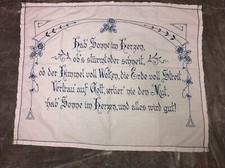 Hab' Sonne im Herzen,
ob's stürmt oder schneit,
ob der Himmel voll Wolken, die Erde voll Streit
Vertrau auf Gott, verlier' nie den Mut,
hab' Sonne im Herzen, und alles wird gut!